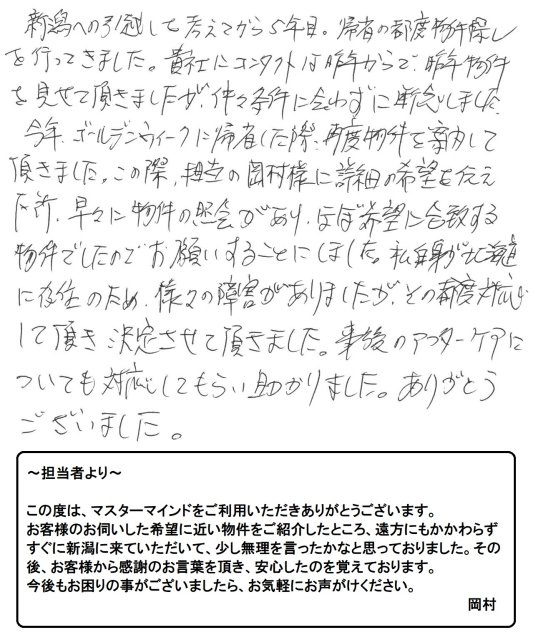 新潟への引越しを考えてから5年目。帰省の都度物件探し
を行ってきました。貴社にコンタクトは昨年からで、昨年物件
を見せて頂きましたが、仲々条件に合わずに断念しました
今年、ゴールデンウィークに帰省した際、再度物件を案内して
頂きました。この際、担当の岡村様に詳細の希望を伝え
た所、早々に物件の照会があり、ほぼ希望に合致する
物件でしたのでお願いすることにしました。私自身が北海道
に在住のため、様々の障害がありましたが、その都度対応
して頂き決定させて頂きました。事後のアフターケアに
ついても対応してもらい助かりました。ありがとう
ございました。
～担当者より～
この度は、マスターマインドをご利用いただきありがとうございます。
お客様のお伺いした希望に近い物件をご紹介したところ、遠方にもかかわらず
すぐに新潟に来ていただいて、少し無理を言ったかなと思っておりました。その
後、お客様から感謝のお言葉を頂き、安心したのを覚えております。
今後もお困りの事がございましたら、お気軽にお声がけください。
岡村